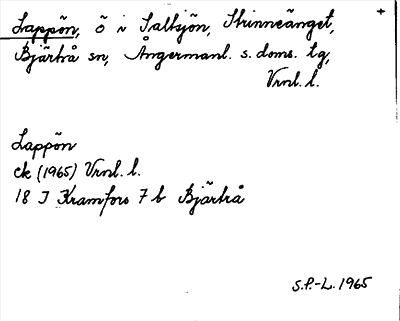 Lappön, ö i Saltsjön, Strinneänget, +
Bjärtrå sn, Ångermanl. s. doms. tg,
Vrnl. l.
Lappön
ek (1965) Vrnl. l.
18 J Kramfors 7 b Bjärtrå
S.P.-L. 1965